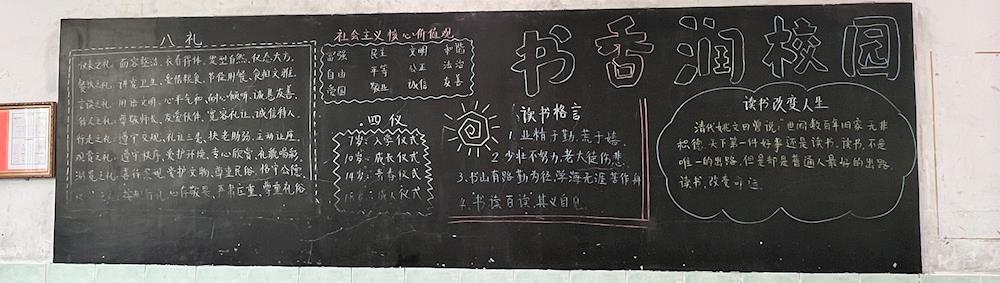 八礼
仪表之礼：面容整洁、衣着得体、发型自然、仪态大方。
餐饮之礼：讲究卫生、爱惜粮食、节俭用餐、食相文雅。
言谈之礼：用语文明、心平气和、耐心倾听、诚恳友善。
待人之礼：尊敬师长、友爱伙伴、宽容礼让、诚信待人。
行走之礼：遵守交规、礼让三老、扶老助弱、主动让座。
观赏之礼：遵守秩序、爱护环境、专心欣赏、礼貌喝彩。
游览之礼：善待景观、爱护文物、尊重民俗、恪守公德。
心存敬畏、严肃庄重、尊重礼俗
社会主义核心价值观
富强 民主 文明 和谐
自由 平等 公正 法治
爱国 敬业 诚信 友善
四仪
7岁：入学仪式
10岁：成长仪式
14岁：青春仪式
18岁：成人仪式
书香润校园
读书格言
1.业精于勤,荒于嬉.
2.少壮不努力,老大徒伤悲
3.书山有路勤为径,学海无涯苦作舟
4.书读百读,其义自见
读书改变人生
清代姚文田曾说:"世间数百年旧家无非
积德,天下第一件好事还是读书。读书,不是
唯一的出路,但是却是普通人最好的出路.
读书,改变命运.